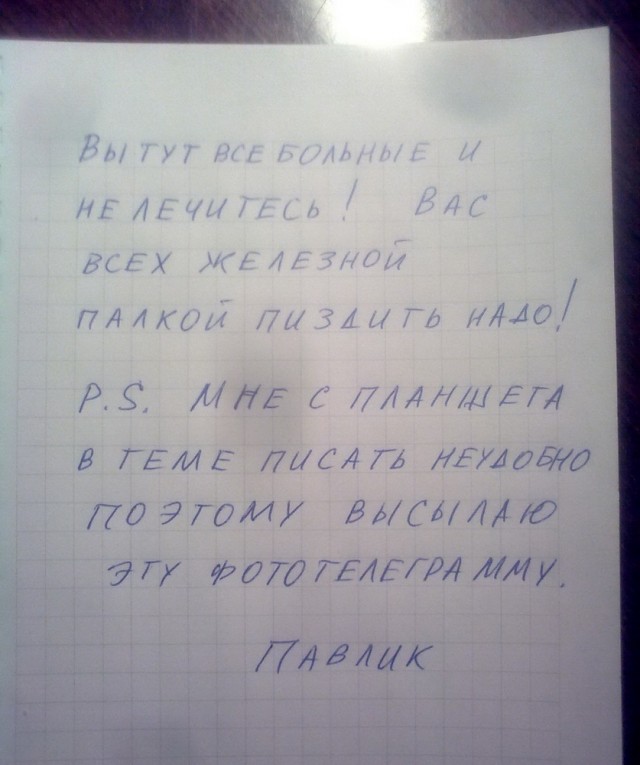 Вы тут все больные и
не лечитесь! Вас
всех железной
палкой пиздить надо!
P.S. Мне с планшета
в теме писать неудобно
поэтому высылаю
эту фототелеграмму.
Павлик